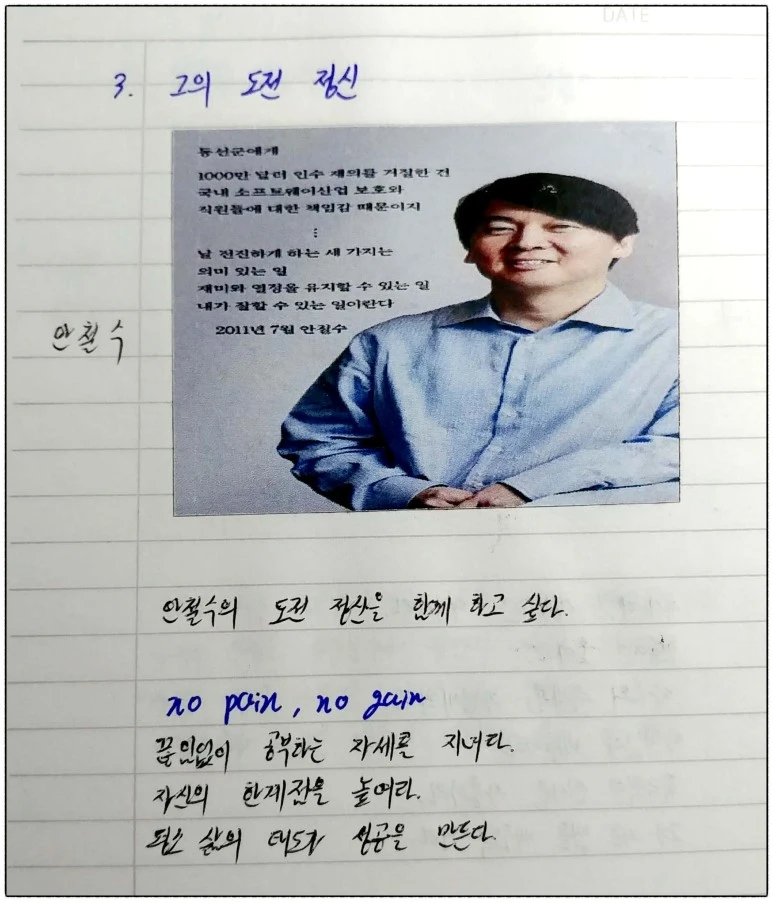 DATE
3. 그의 도전 정신
동선군에게
1000만 달러 인수 제의를 거절한 건
국내 소프트웨어산업 보호와
직원들에 대한 책임감 때문이지
⋮
날 전진하게 하는 세 가지는
의미 있는 일
재미와 열정을 유지할 수 있는 일
내가 잘할 수 있는 일이란다
2011년 7월 안철수
안철수
안철수의 도전 정신을 함께 하고 싶다.
no pain, no gain
끊임없이 공부하는 자세를 지녀다.
자신의 한계점을 높여라.
평소 삶의 태도가 성공을 만든다.